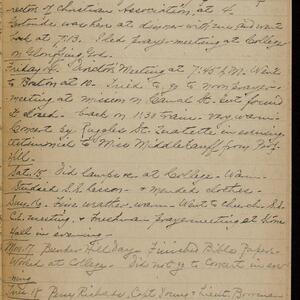 rector of Christian Association, at 4.
Gertrude washers at dinner with me and went
back at 7:13. I led prayer-meeting at College
on Glorifying God.
Friday 14. Directors' Meeting at 7:45 P.M. Went
to Boston at 10. Tried to go to noon prayer-
meeting at mission on Canal St. but found
it closed. back on 11:30 train. very warm.
Concert by Ruggles St. Quartette in evening
testimonial to Miss Middlekauff from
Hill.
Sat. 15. Did Campus at College. Warm.
Studied S.S. Lesson & mended clothes.
Sun. 16. Fine weather, warm. Went to church, S.S.
Ch. meeting, & Freshman prayer meeting at Stone
Hall in evening.
Mon. 17 Bunker Hill Day Finished Bible Paper.
Worked at College. Did not go to Concert in eve-
ning.
Tues. 18 Perry Richards, Capt. Young & Lieut. Bowman